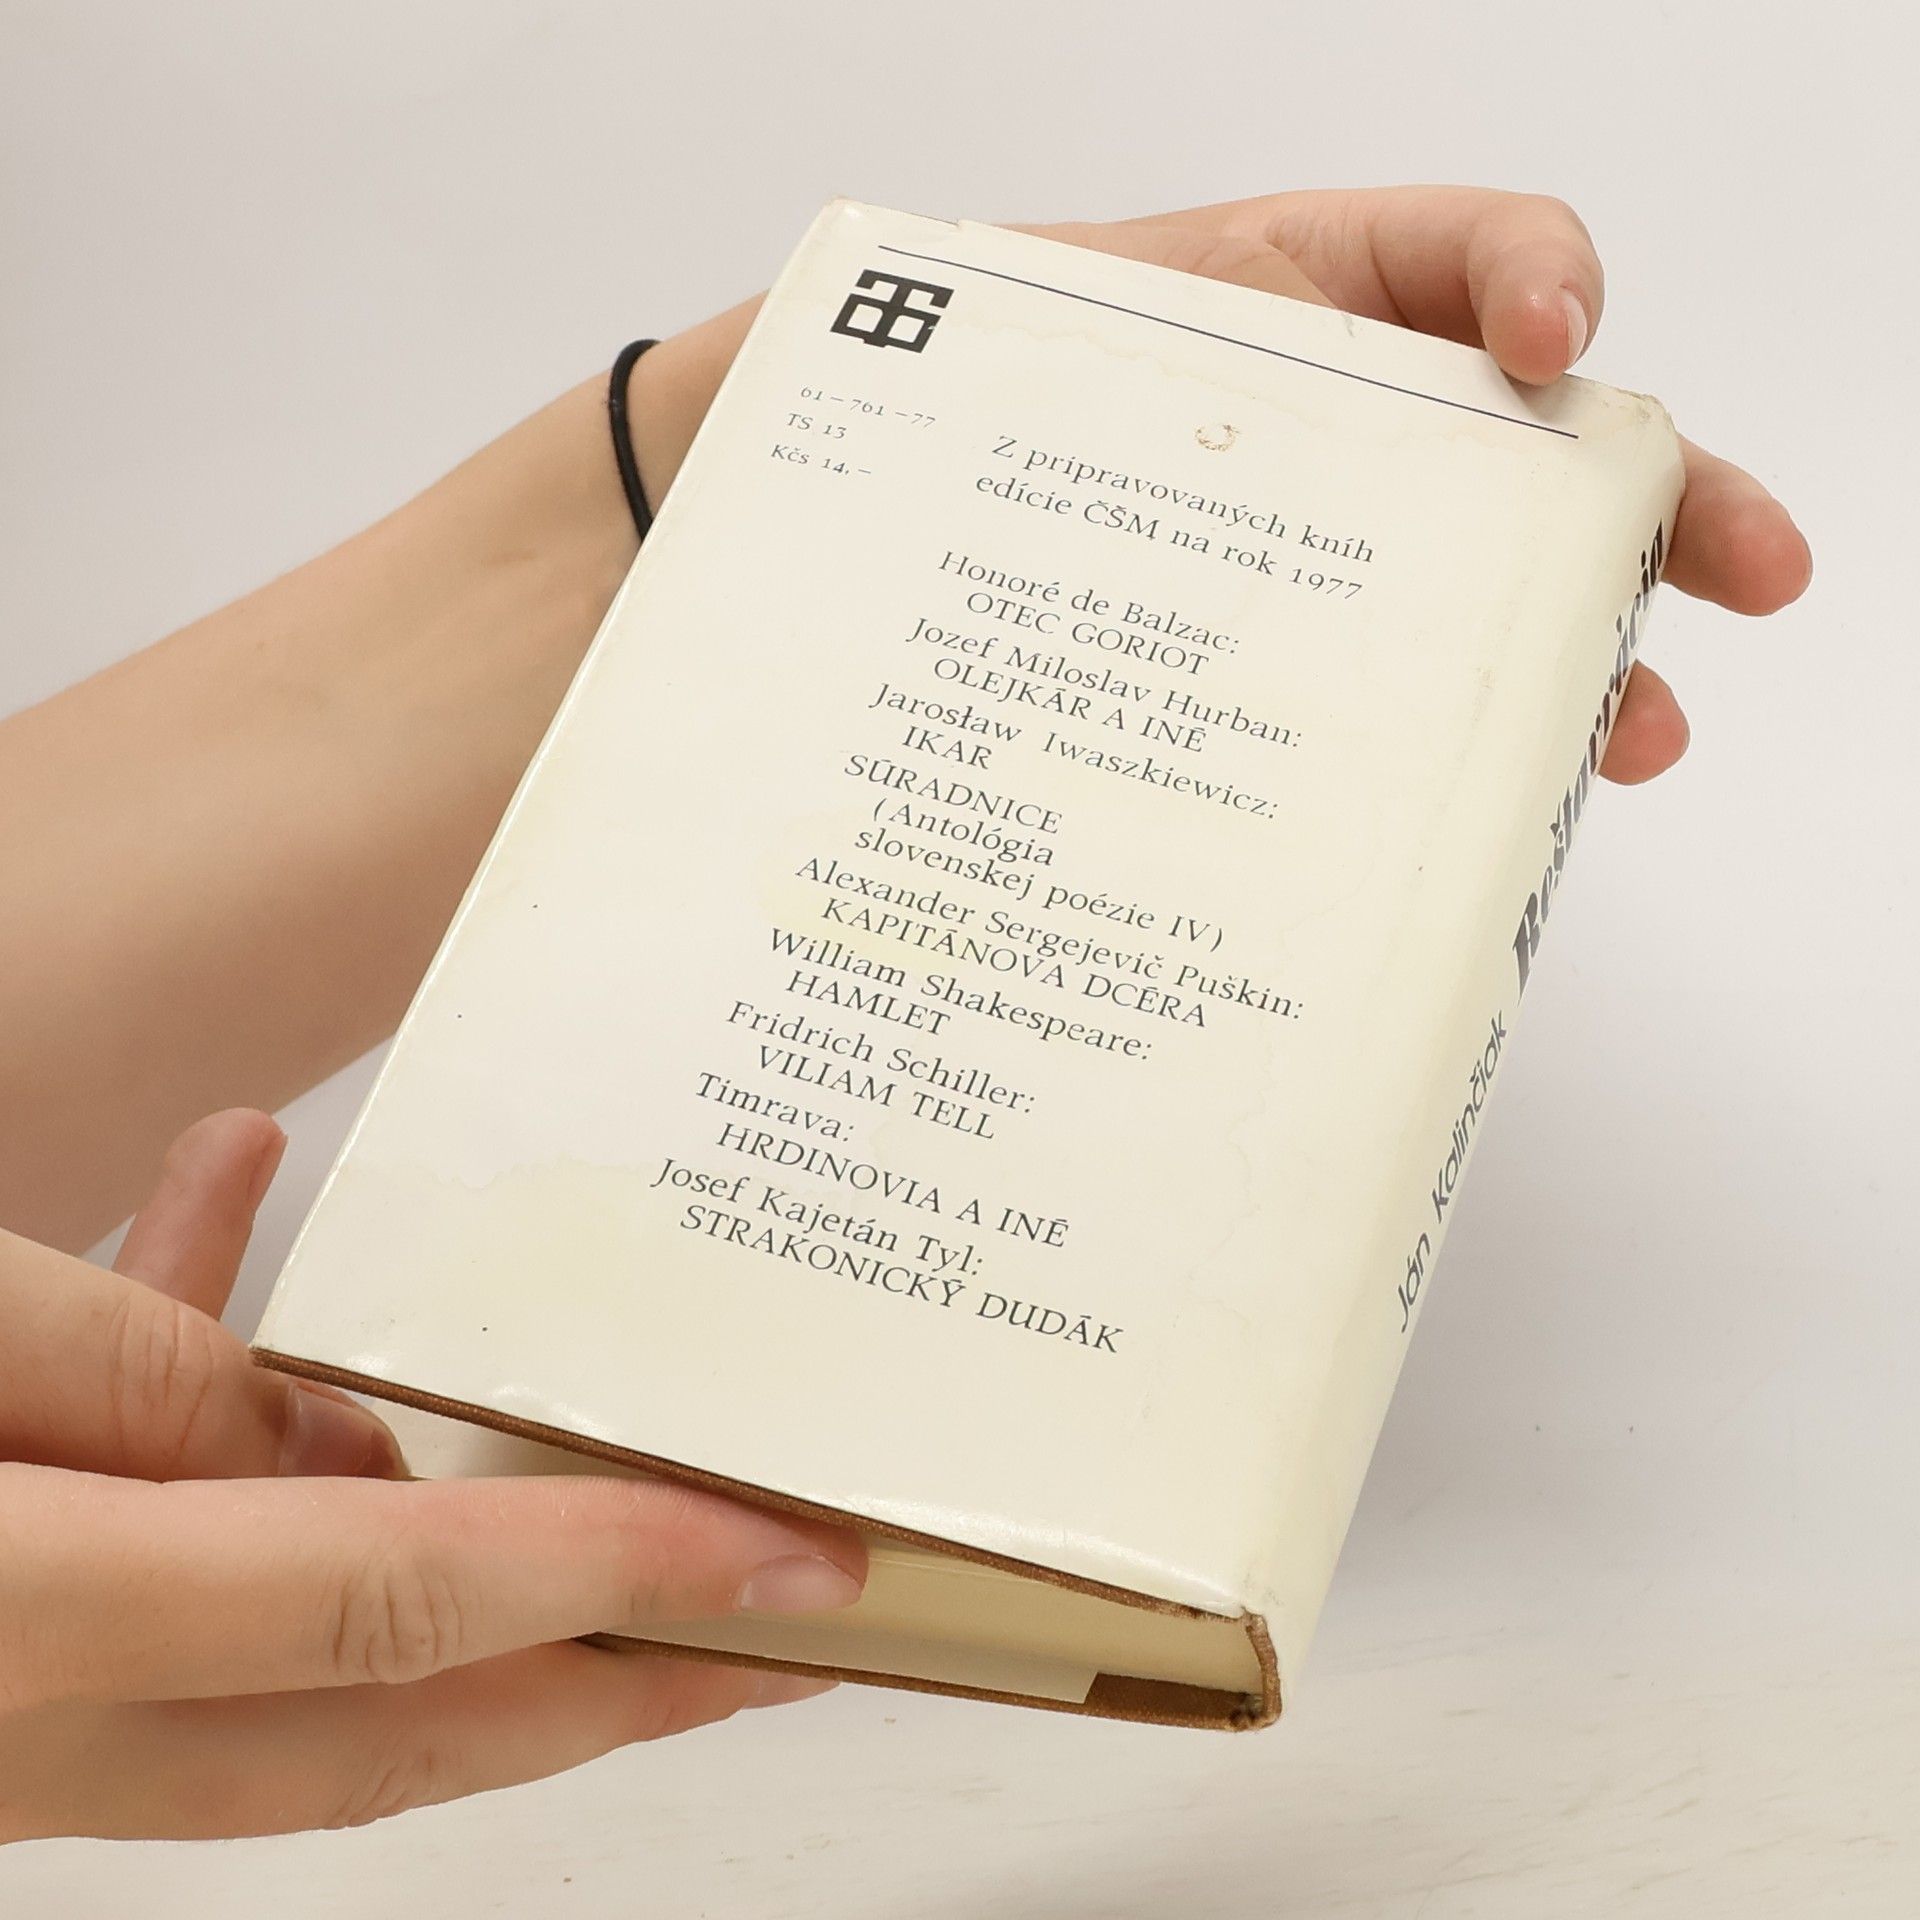 61-761-77
TS 13
Kčs 14,-
Z pripravovaných kníh
edície ČŠM na rok 1977
Honoré de Balzac:
OTEC GORIOT
Jozef Miloslav Hurban:
OLEJKÁR A INÉ
Jarosław Iwaszkiewicz:
IKAR
SÚRADNICE
(Antológia
slovenskej poézie IV)
Alexander Sergejevič Puškin:
KAPITÁNOVA DCÉRA
William Shakespeare:
HAMLET
Fridrich Schiller:
VILIAM TELL
Timrava:
HRDINOVIA A INÉ
Josef Kajetán Tyl:
STRAKONICKÝ DUDÁK
Ján Kalinčiak Reštavrácia